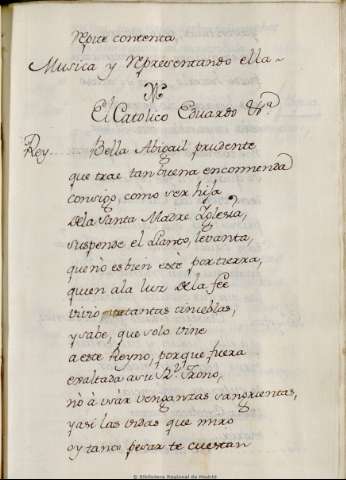 repite contenta,
Musica y representando ella
El Catolico Eduardo &ra.
Rey...... Bella Abigail prudente
que trae tan buena encomienda
consigo, como ser hija
dela Santa Madre Iglesia,
suspende el llanto, levanta,
que nò es bien estè por tierra,
quien ala luz dela feè
viviò tantas tinieblas,
y sabe, que solo vine
a este Reyno, porque fuera
exaltada asu Rl. Trono,
nò à usàr venganzas sangrientas,
y asi las vidas que miro
oy tanto pesar te cuestan
© Biblioteca Regional de Madrid